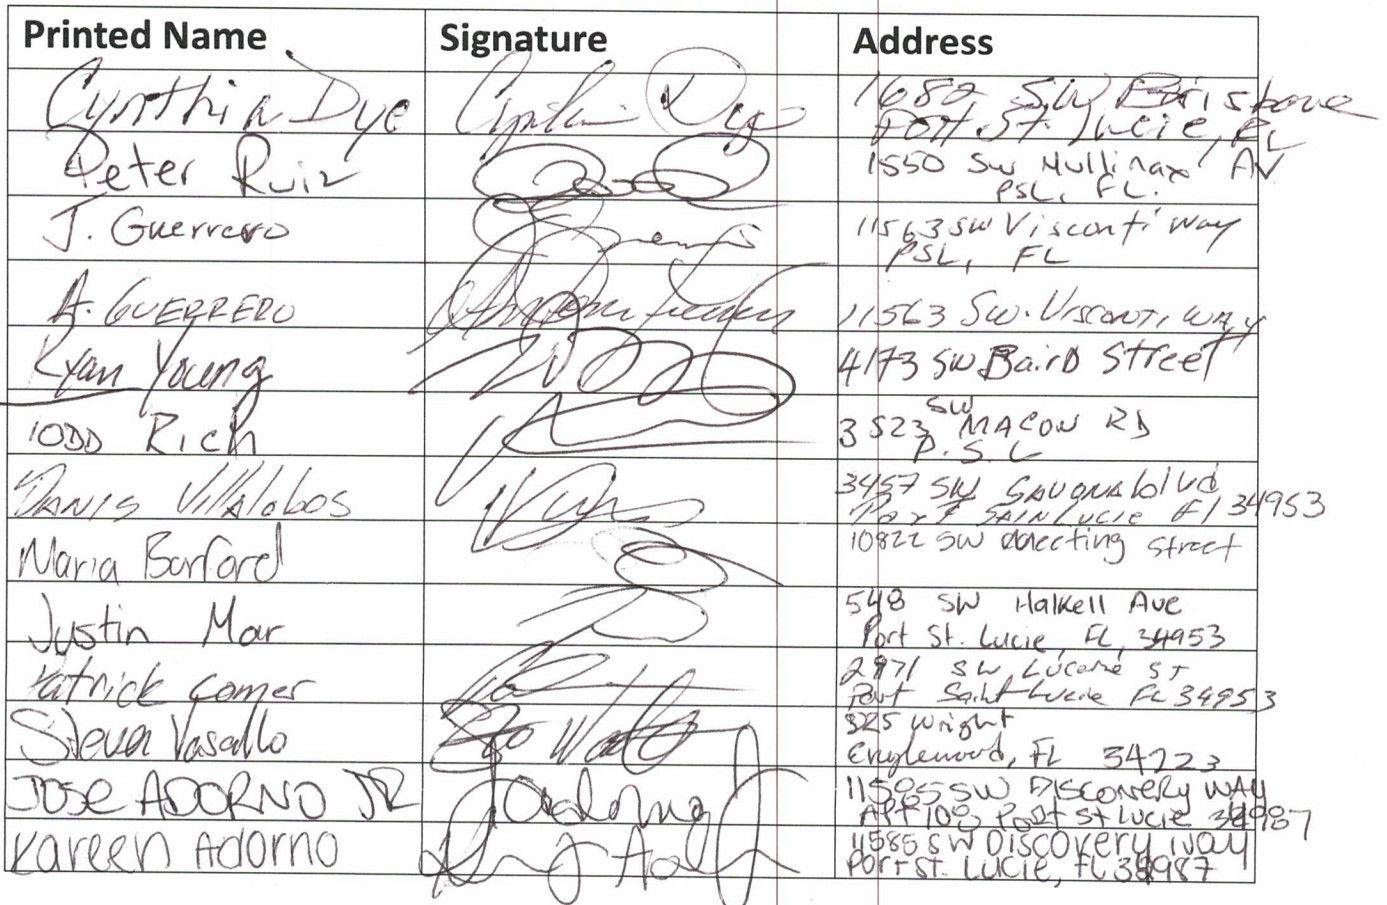 Printed Name Signature Address
Cynthia Dye Cynthia Dye 1682 SW
Port St. Lucie, FL
Peter Ruiz 1550 SW Mullinax AV
PSL, FL.
J. Guerrero 11563 SW Visconti Way
PSL, FL
A. GUERRERO 11563 SW. VISCONTI WAY
Ryan Young 4173 SW BairD Street
TODD Rich 3523 SW MACON RD
P.S.L
DANIS VillAlobos 3457 SW SAVONA blvd
Port SAIN LUCIE Fl 34953
Maria Borford 10822 SW Meeting Street
Justin Mar 548 SW Halkell Ave
Port St. Lucie, FL, 34953
Patrick Gomer 2971 SW Lucerne ST
Port Saint Lucie FL 34953
Steven Vasallo 325 Wright
Englewood, FL 34223
JOSE ADORNO JR JAdorno 11585 SW DISCOVERY WAY
APT 108 Port St Lucie 34987
Kareen Adorno 11585 SW Discovery Way
Port St. Lucie, FL 34987